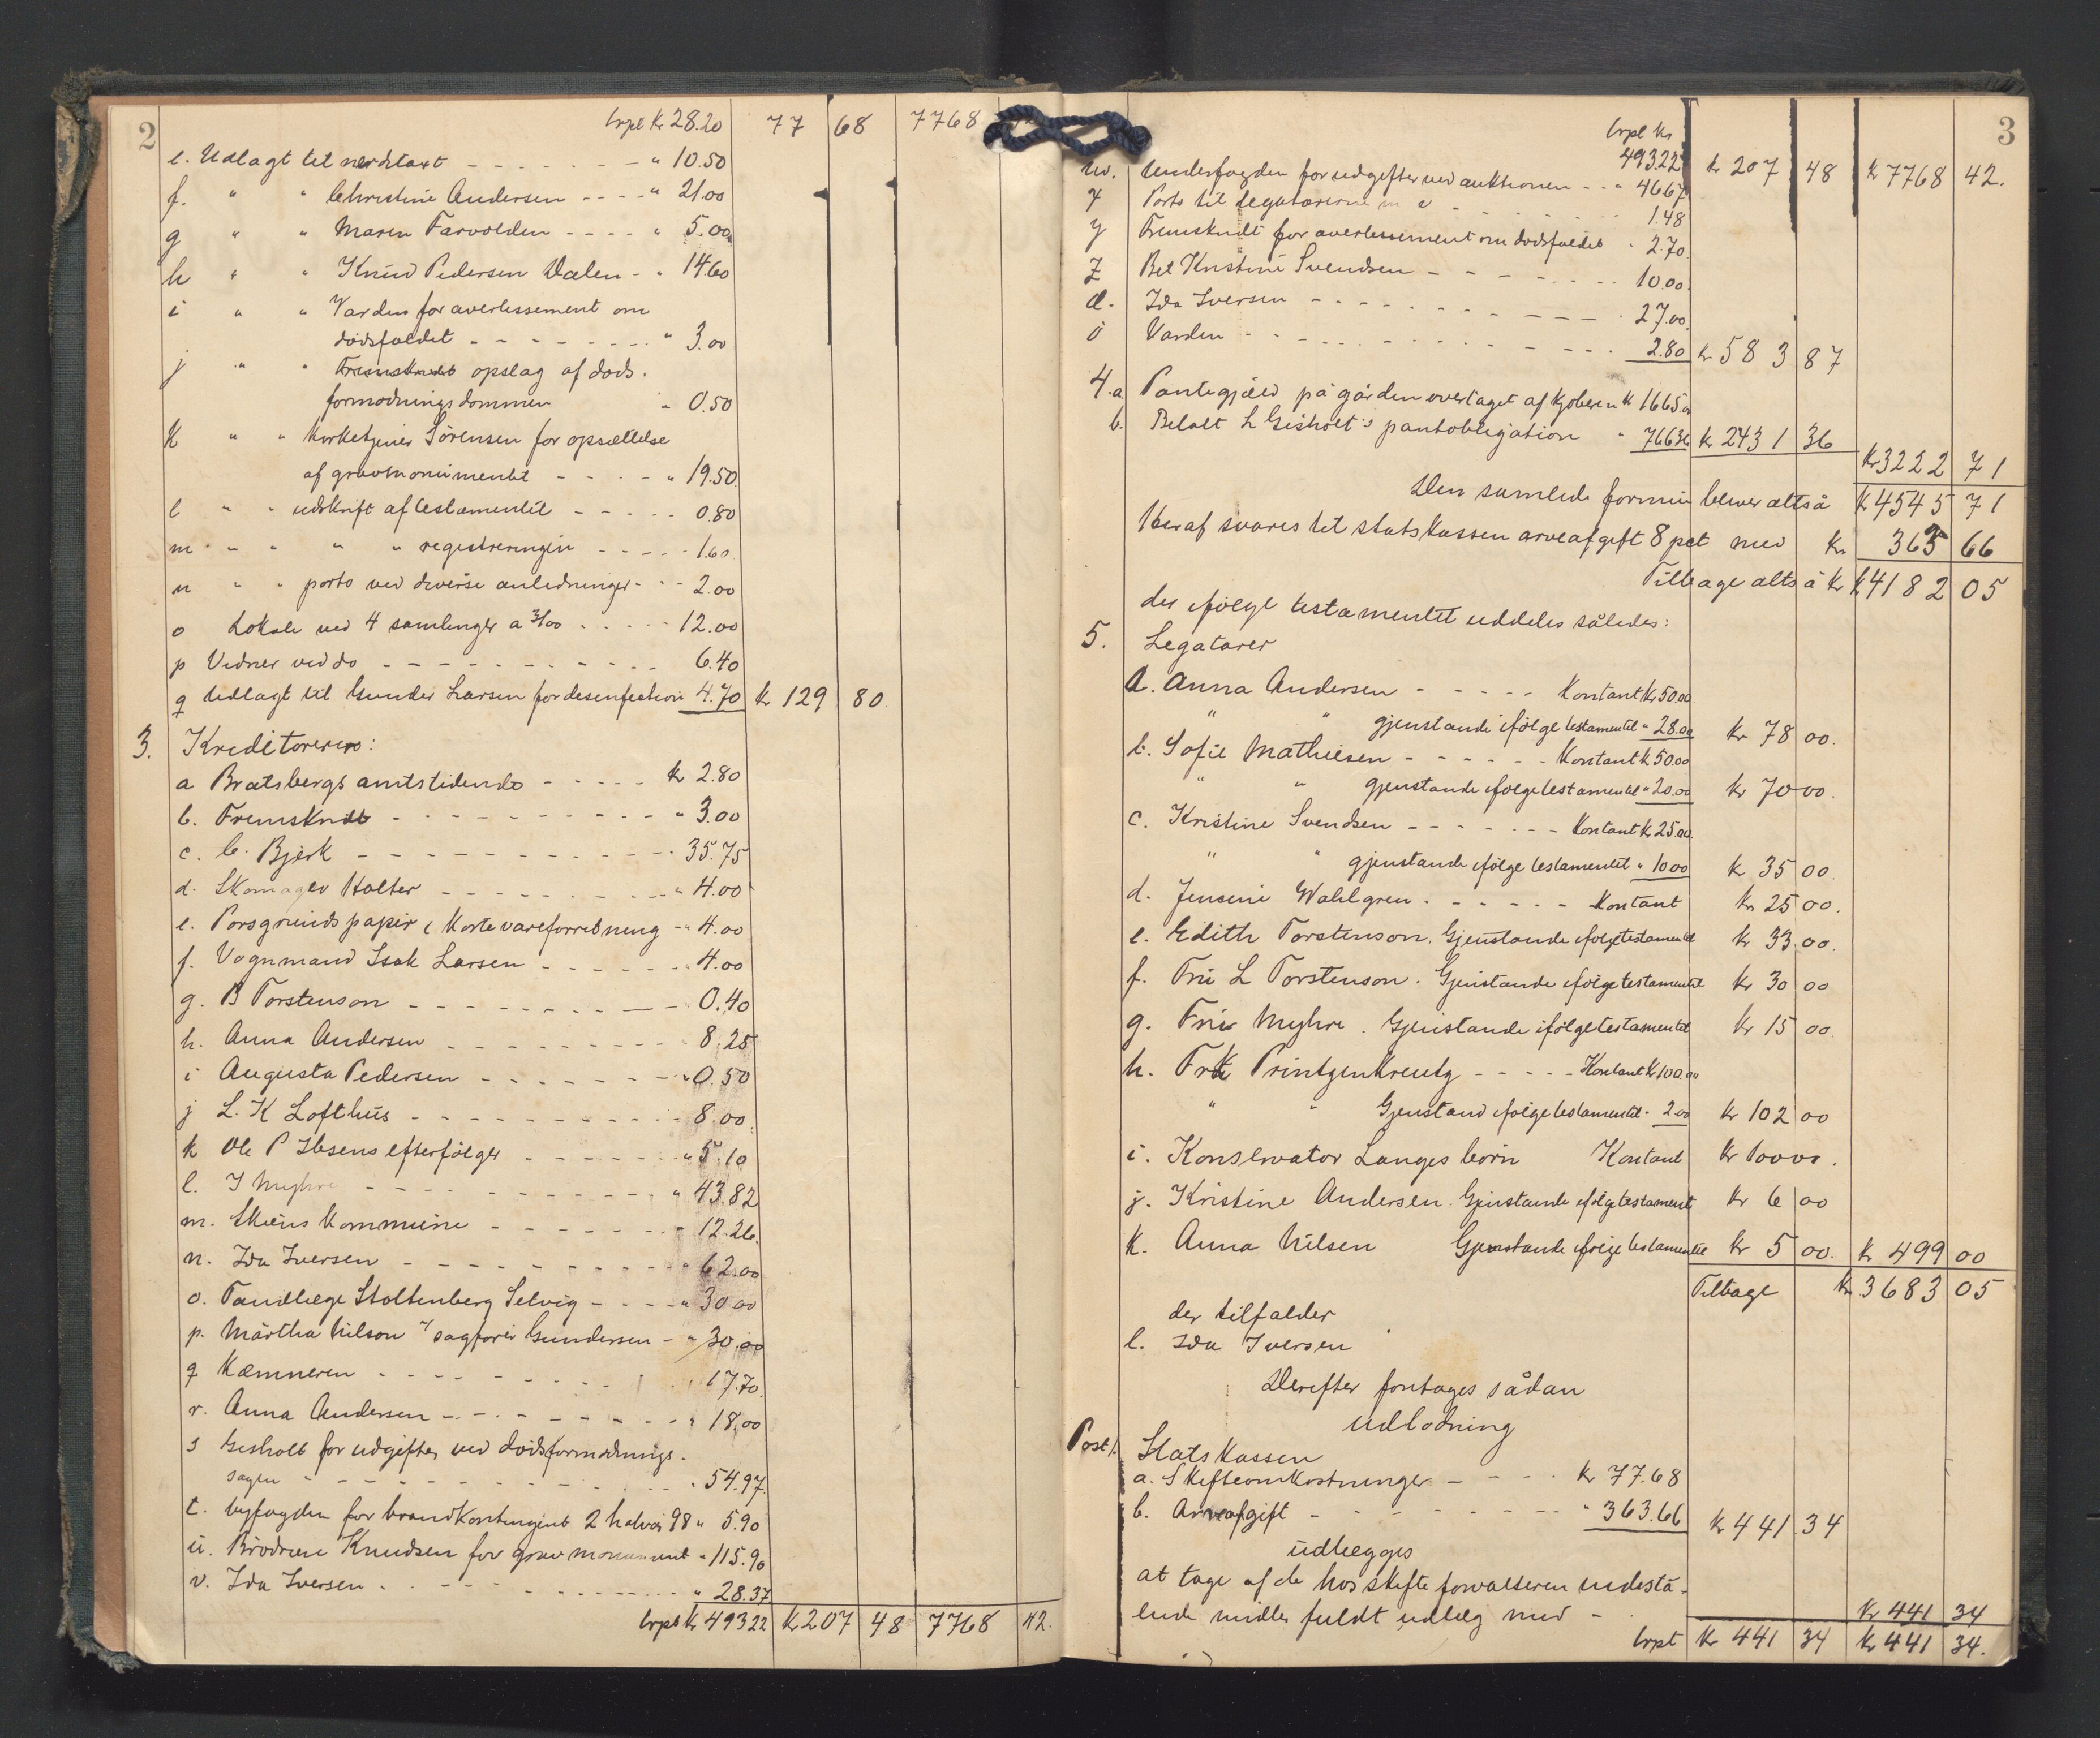 2
trpt Kr 28.20 77 68 7768
e. Udlagt til værditaxt " 10.50
f. " " Christine Andersen " 21.00
g " " Maren Farvolden " 5.00
h " " Knud Pedersen Dalen " 14.60
i " " Varden for avertissement om
dødsfaldet " 3.00
j " " Fremskridt opslag af døds-
formodningsdommen " 0.50
k " " Kirketjener Sørensen for opsættelse
af gravmonumentet " 19.50
l " " udskrift af testamentet 0.80
m " " " " registreringen 1.60
n " " porto ved diverse anledninger 2.00
o Lokale ved 4 samlinger a 3/00 12.00
p Vidner ved do 6.40
q Udlagt til Gunder Larsen for desenfection 4.70 kr 129 80
3. Kreditorerer:
a Bratsbergs amtstidende kr 2.80
b. Fremskridt " 3.00
c. C. Bjerk 35.75
d. Skomager Holter " 4.00
e. Porsgrunds papir & Kortevareforretning " 4.00
f. Vognmand Isak Larsen " 4.00
g. B Torstenson 0.40
h. Anna Andersen 8.25
i Augusta Pedersen " 0.50
j L. K Lofthus 8.00
k Ole P Ibsens efterfølger " 5.10
l. I Myhre " 43.82
m. Skiens Kommune " 12.26.
n. Ida Iversen " 62.00
o. Tandlæge Stoltenberg Selvig " 30.00
p. Märtha Nilson v/ sagfører Gundersen " 30.00
q Kæmneren 17.70.
r. Anna Andersen " 18.00
s Gisholt for udgifter ved dødsformodnings-
sagen " 54.97.
t. byfogden for brandkontingent 2 halvår 98 " 5.90
u. Brødrene Knudsen for gravmonument " 115.90
v. Ida Iversen " 28.37
trpt kr 493 22 k 207 48 7768 42.
3
trpt kr
493.22 kr 207 48 kr 7768 42.
w. Underfogden for udgifter ved auktionen " 46.67
x Porto til legatarerne m v 1.48
y Fremskridt for avertissement om dødsfaldet " 2.70
z Bet Kristine Svendsen 10.00.
æ. Ida Iversen 27.00.
ö Varden 2.80 kr 583 87
4. a Pantegjæld på gården overtaget af kjøberen kr 1665.00
b. Betalt L Gisholt's pantobligation " 766.36 kr 2431 36
kr 3222 71
Den samlede formue bliver altså kr 4545 71
Heraf svares til statskassen arveafgift 8 pct med kr 363 66
Tilbage altså kr 4182 05
der ifølge testamentet uddeles således:
5. Legatarer
a. Anna Andersen Kontant kr 50.00
" " gjenstande ifølge testamentet " 28.00 kr 78 00.
b. Sofie Mathiesen Kontant k 50.00
" " gjenstande ifølge testamentet " 20.00 kr 70 00.
c. Kristine Svendsen Kontant k 25.00
" " gjenstande ifølge testamentet " 10.00 kr 35 00.
d. Jensine Wahlgren Kontant kr 25 00.
e. Edith Torstenson. Gjenstande ifølge testamentet kr 33 00.
f. Fru L Torstenson. Gjenstande ifølge testamentet kr 30 00
g. Fru Myhre. Gjenstande ifølge testamentet kr 15 00.
h. Frk Printzenkreutz Kontant kr 100.00
" " Gjenstand ifølge testamentet " 2.00 kr 102 00
i. Konservator Langes børn Kontant kr 100 00.
j. Kristine Andersen. Gjenstande ifølge testament kr 6 00
k. Anna Nilsen Gjenstande ifølge testamentet kr 5 00. kr 499 00
Tilbage kr 3683 05
der tilfalder
l. Ida Iversen
Derefter foretages sådan
udlodning
Post 1. Statskassen
a. Skifteomkostninger kr 77.68
b. Arveafgift " 363.66 kr 441 34
udlægges
at tage af de hos skifteforvalteren indestå-
ende midler fuldt udlæg med kr 441 34
trpt kr 441 34 kr 441 34.